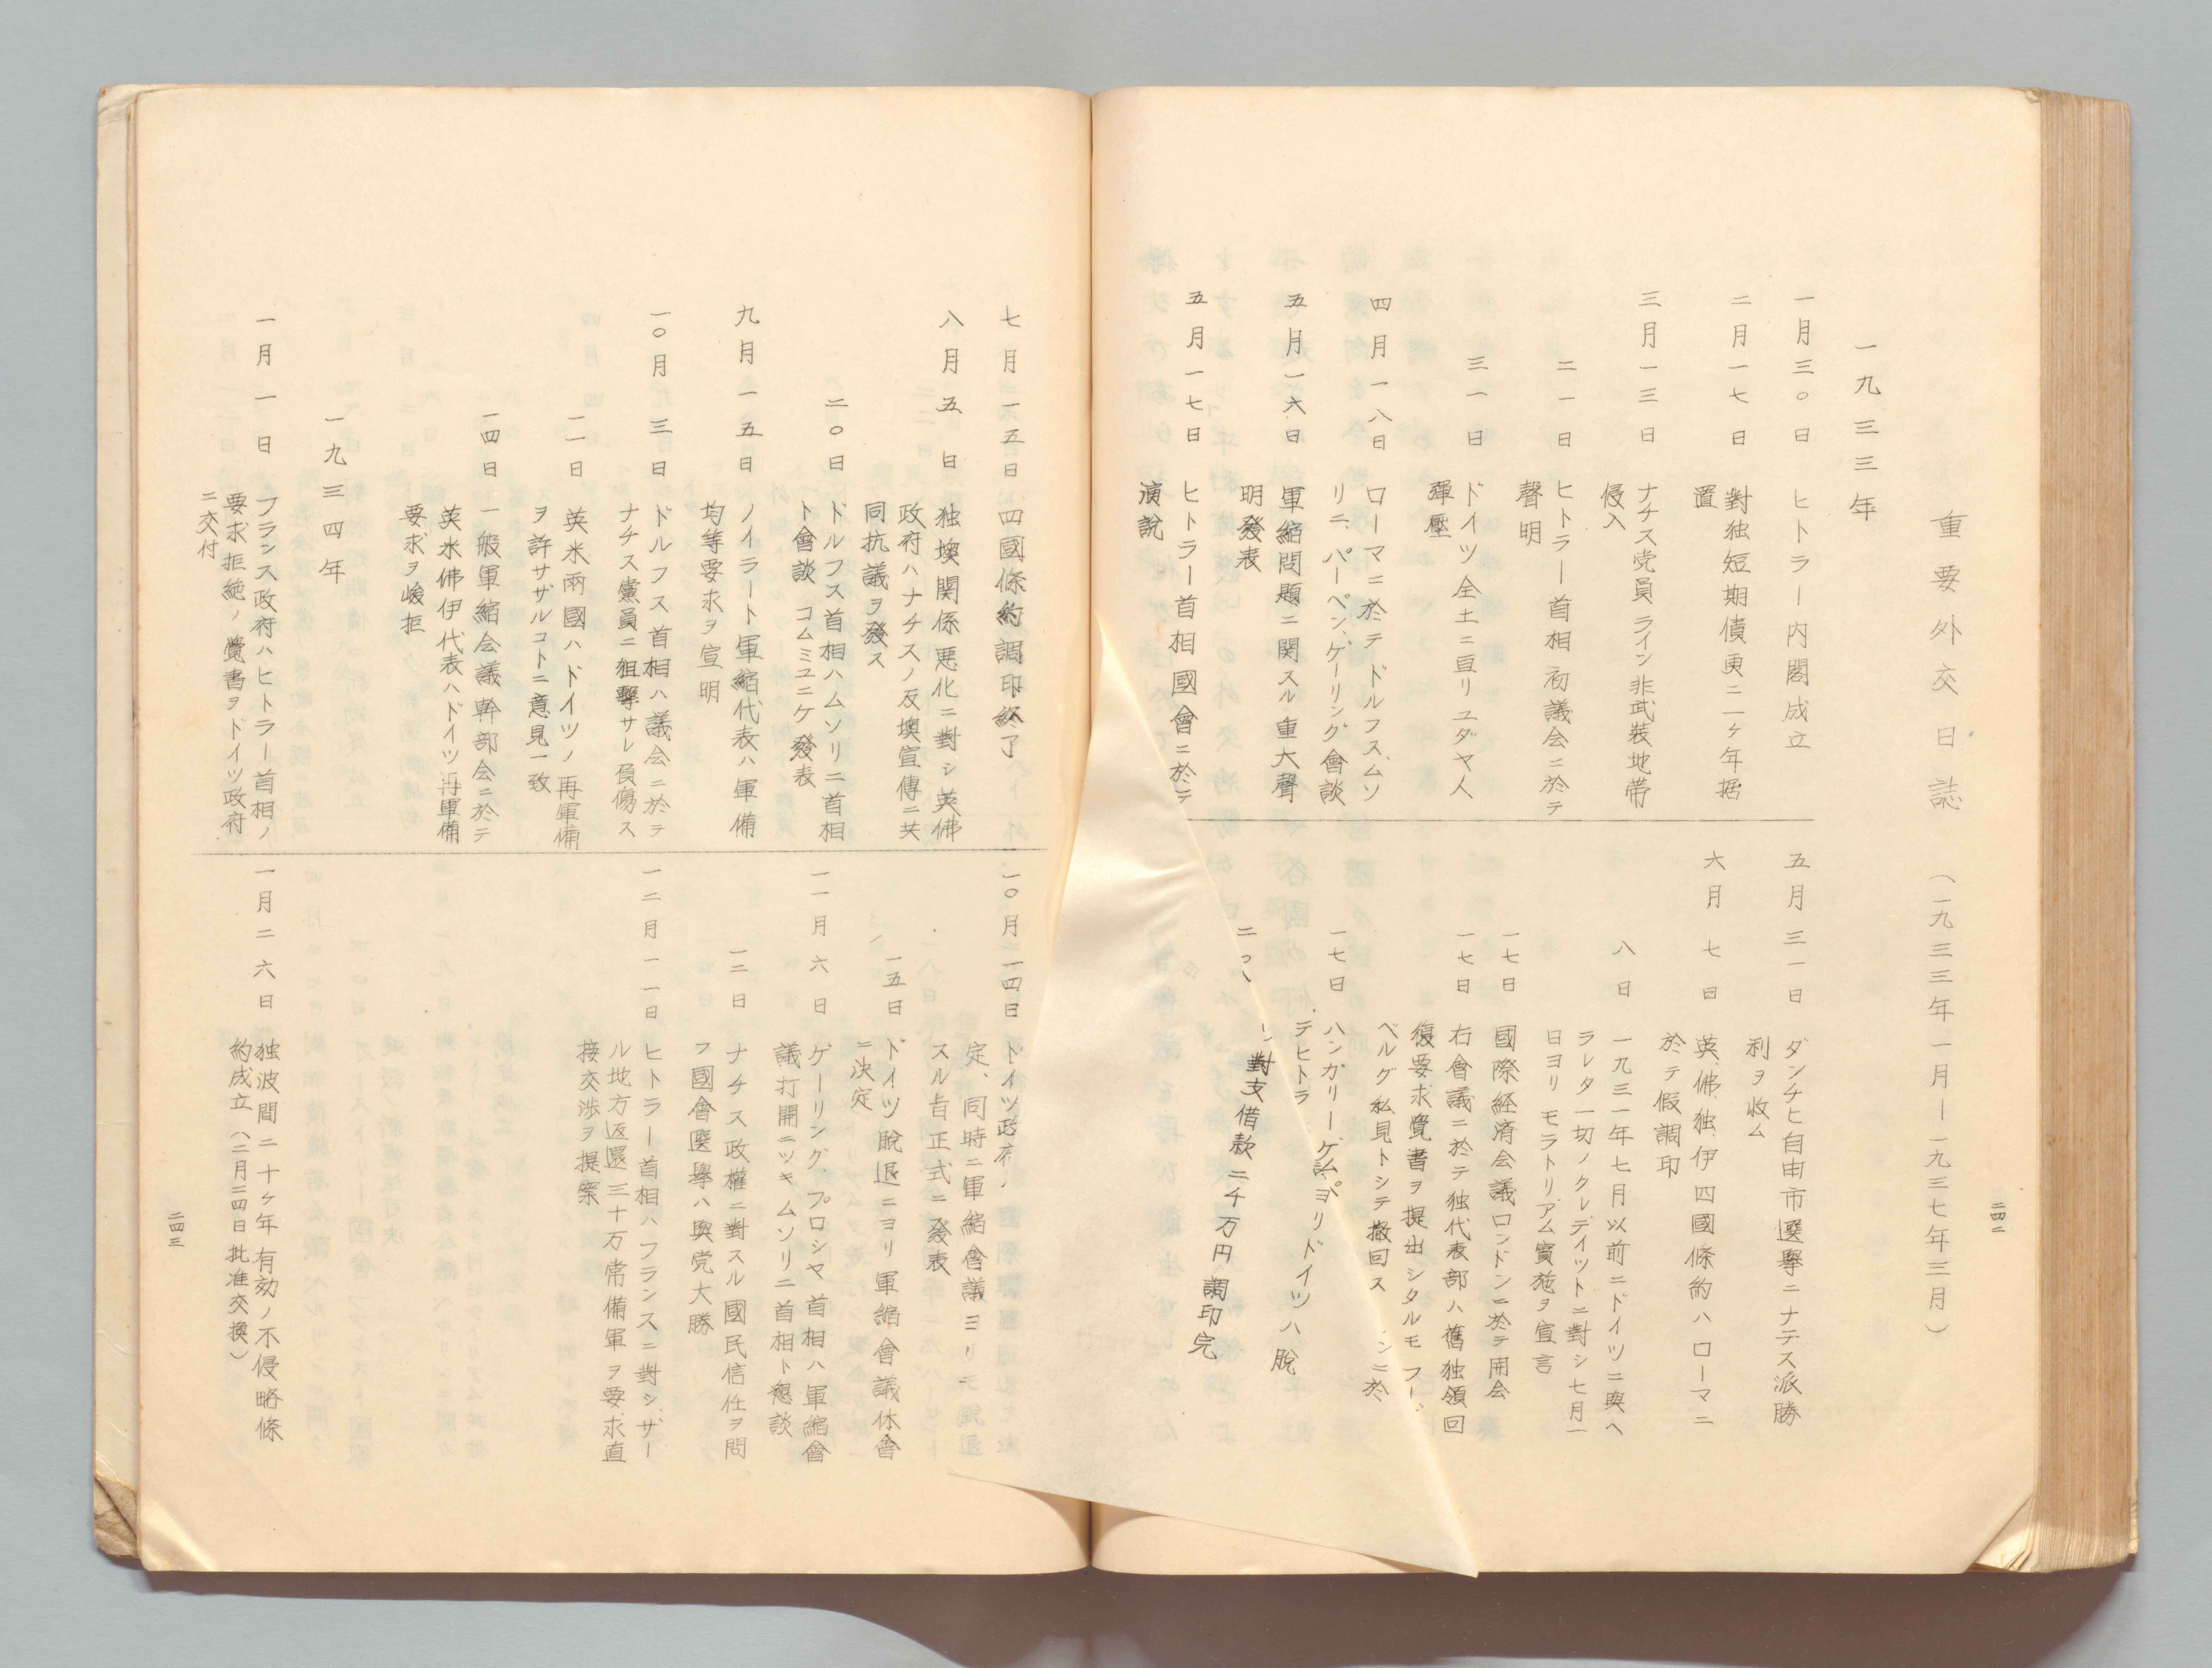 重要外交日誌（一九三三年一月ー一九三七年三月）
一九三三年
一月三〇日 ヒトラー内閣成立
二月一七日 對独短期債更ニヶ年据
置
三月一三日 ナチス党員ライン非武装地帯
侵入
二一日 ヒトラー首相初議会ニ於テ
聲明
三一日 ドイツ全土ニ亘リユダヤ人
彈壓
四月一八日 ローマニ於テドルフス、ムソ
リニ、パーペン、ゲーリング會談
五月一六日 軍縮問題ニ関スル重大聲
明發表
五月一七日 ヒトラー首相國會ニ於テ
演説
五月三一日 ダンチヒ自由市選擧ニナチス派勝
利ヲ收ム
六月七日 英、佛、独、伊四國條約ハローマニ
於テ假調印
八日 一九三一年七月以前ニドイツニ與ヘ
ラレタ一切ノクレデイットニ對シ七月一
日ヨリモラトリアム實施ヲ宣言
一七日 國際経済会議ロンドンニ於テ開会
一七日 右會議ニ於テ独代表部ハ舊独領回
復要求覺書ヲ提出シタルモフー
ベルグ私見トシテ撤回ス
一七日 ハンガリーゲ
ンニ於
テヒトラ
ヨリドイツハ脱
對支借款二千万円調印完
二四二
七月一五日 四國條約調印終了
八月五日 独墺関係悪化ニ對シ英佛
政府ハナチスノ反墺宣傳ニ共
同抗議ヲ發ス
二〇日 ドルフス首相ハムソリニ首相
ト會談 コムミユニケ發表
九月一五日 ノイラート軍縮代表ハ軍備
均等要求ヲ宣明
一〇月三日 ドルフス首相ハ議会ニ於ヲ
ナチス黨員ニ狙擊サレ負傷ス
一一日 英米兩國ハドイツノ再軍備
ヲ許サザルコトニ意見一致
一四日 一般軍縮会議幹部会ニ於テ
英米佛伊代表ハドイツ再軍備
要求ヲ峻拒
一九三四年
一月一日 フランス政府ハヒトラー首相ノ
要求拒絶ノ覺書ヲドイツ政府
ニ交付
一〇月一四日 ドイツ政府
定、同時ニ軍縮會議ヨリ
スル旨正式ニ發表
一五日 ドイツ脱退ニヨリ軍縮會議休會
ニ決定
一一月六日 ゲーリング、プロシヤ首相ハ軍縮會
議打開ニツキムソリニ首相ト懇談
一二日 ナチス政權ニ對スル國民信任ヲ問
フ國會選擧ハ與党大勝
一二月一一日 ヒトラー首相ハフランスニ對シ、ザー
ル地方返還三十万常備軍ヲ要求直
接交渉ヲ提案
一月二六日 独波間二十ヶ年有効ノ不侵略條
約成立（二月二四日批准交換）
二四三